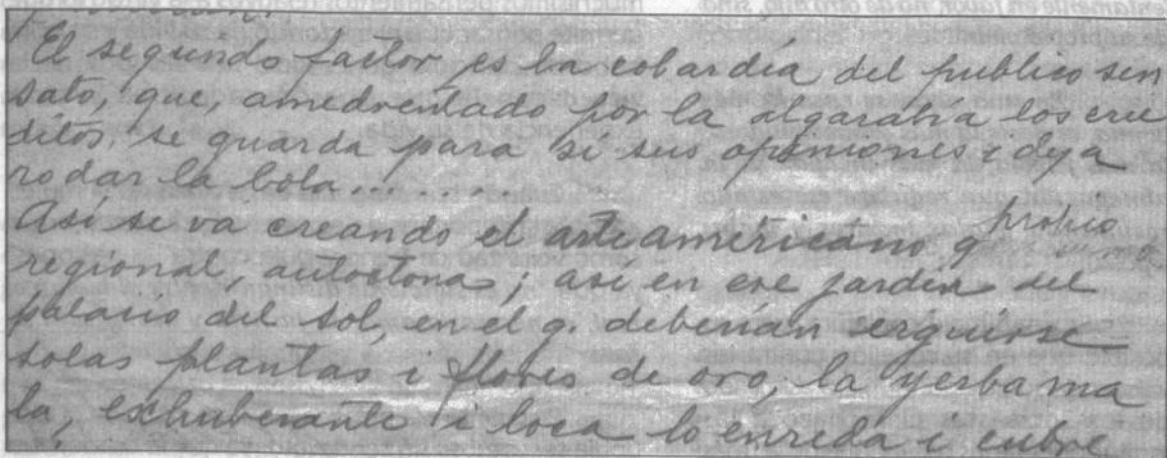 El segundo factor es la cobardía del publico sen
sato, que, amedrentado por la algarabía los eru
ditos, se guarda para sí sus opiniones i deja
rodar la bola.......
Así se va creando el arte americano q propio
regional, autoctona; así en ese jardín del
palacio del sol, en el q. deberían serguirse
solas plantas i flores de oro, la yerba ma
la, exhuberante i loca lo enreda i cubre